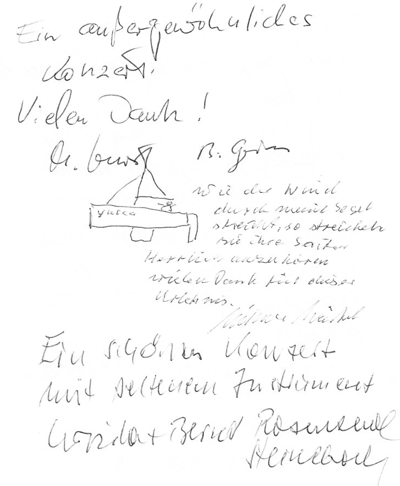 Ein außergewöhnliches
Konzert.
Vielen Dank!
B.
wie der Wind
durch meine Segel
streicht, so streicheln
Sie ihre Saiten
Herrlich anzuhören
vielen Dank für dieses
Erlebnis.
Ein schönes Konzert
mit seltenem Instrument
+ Bernd Rosen